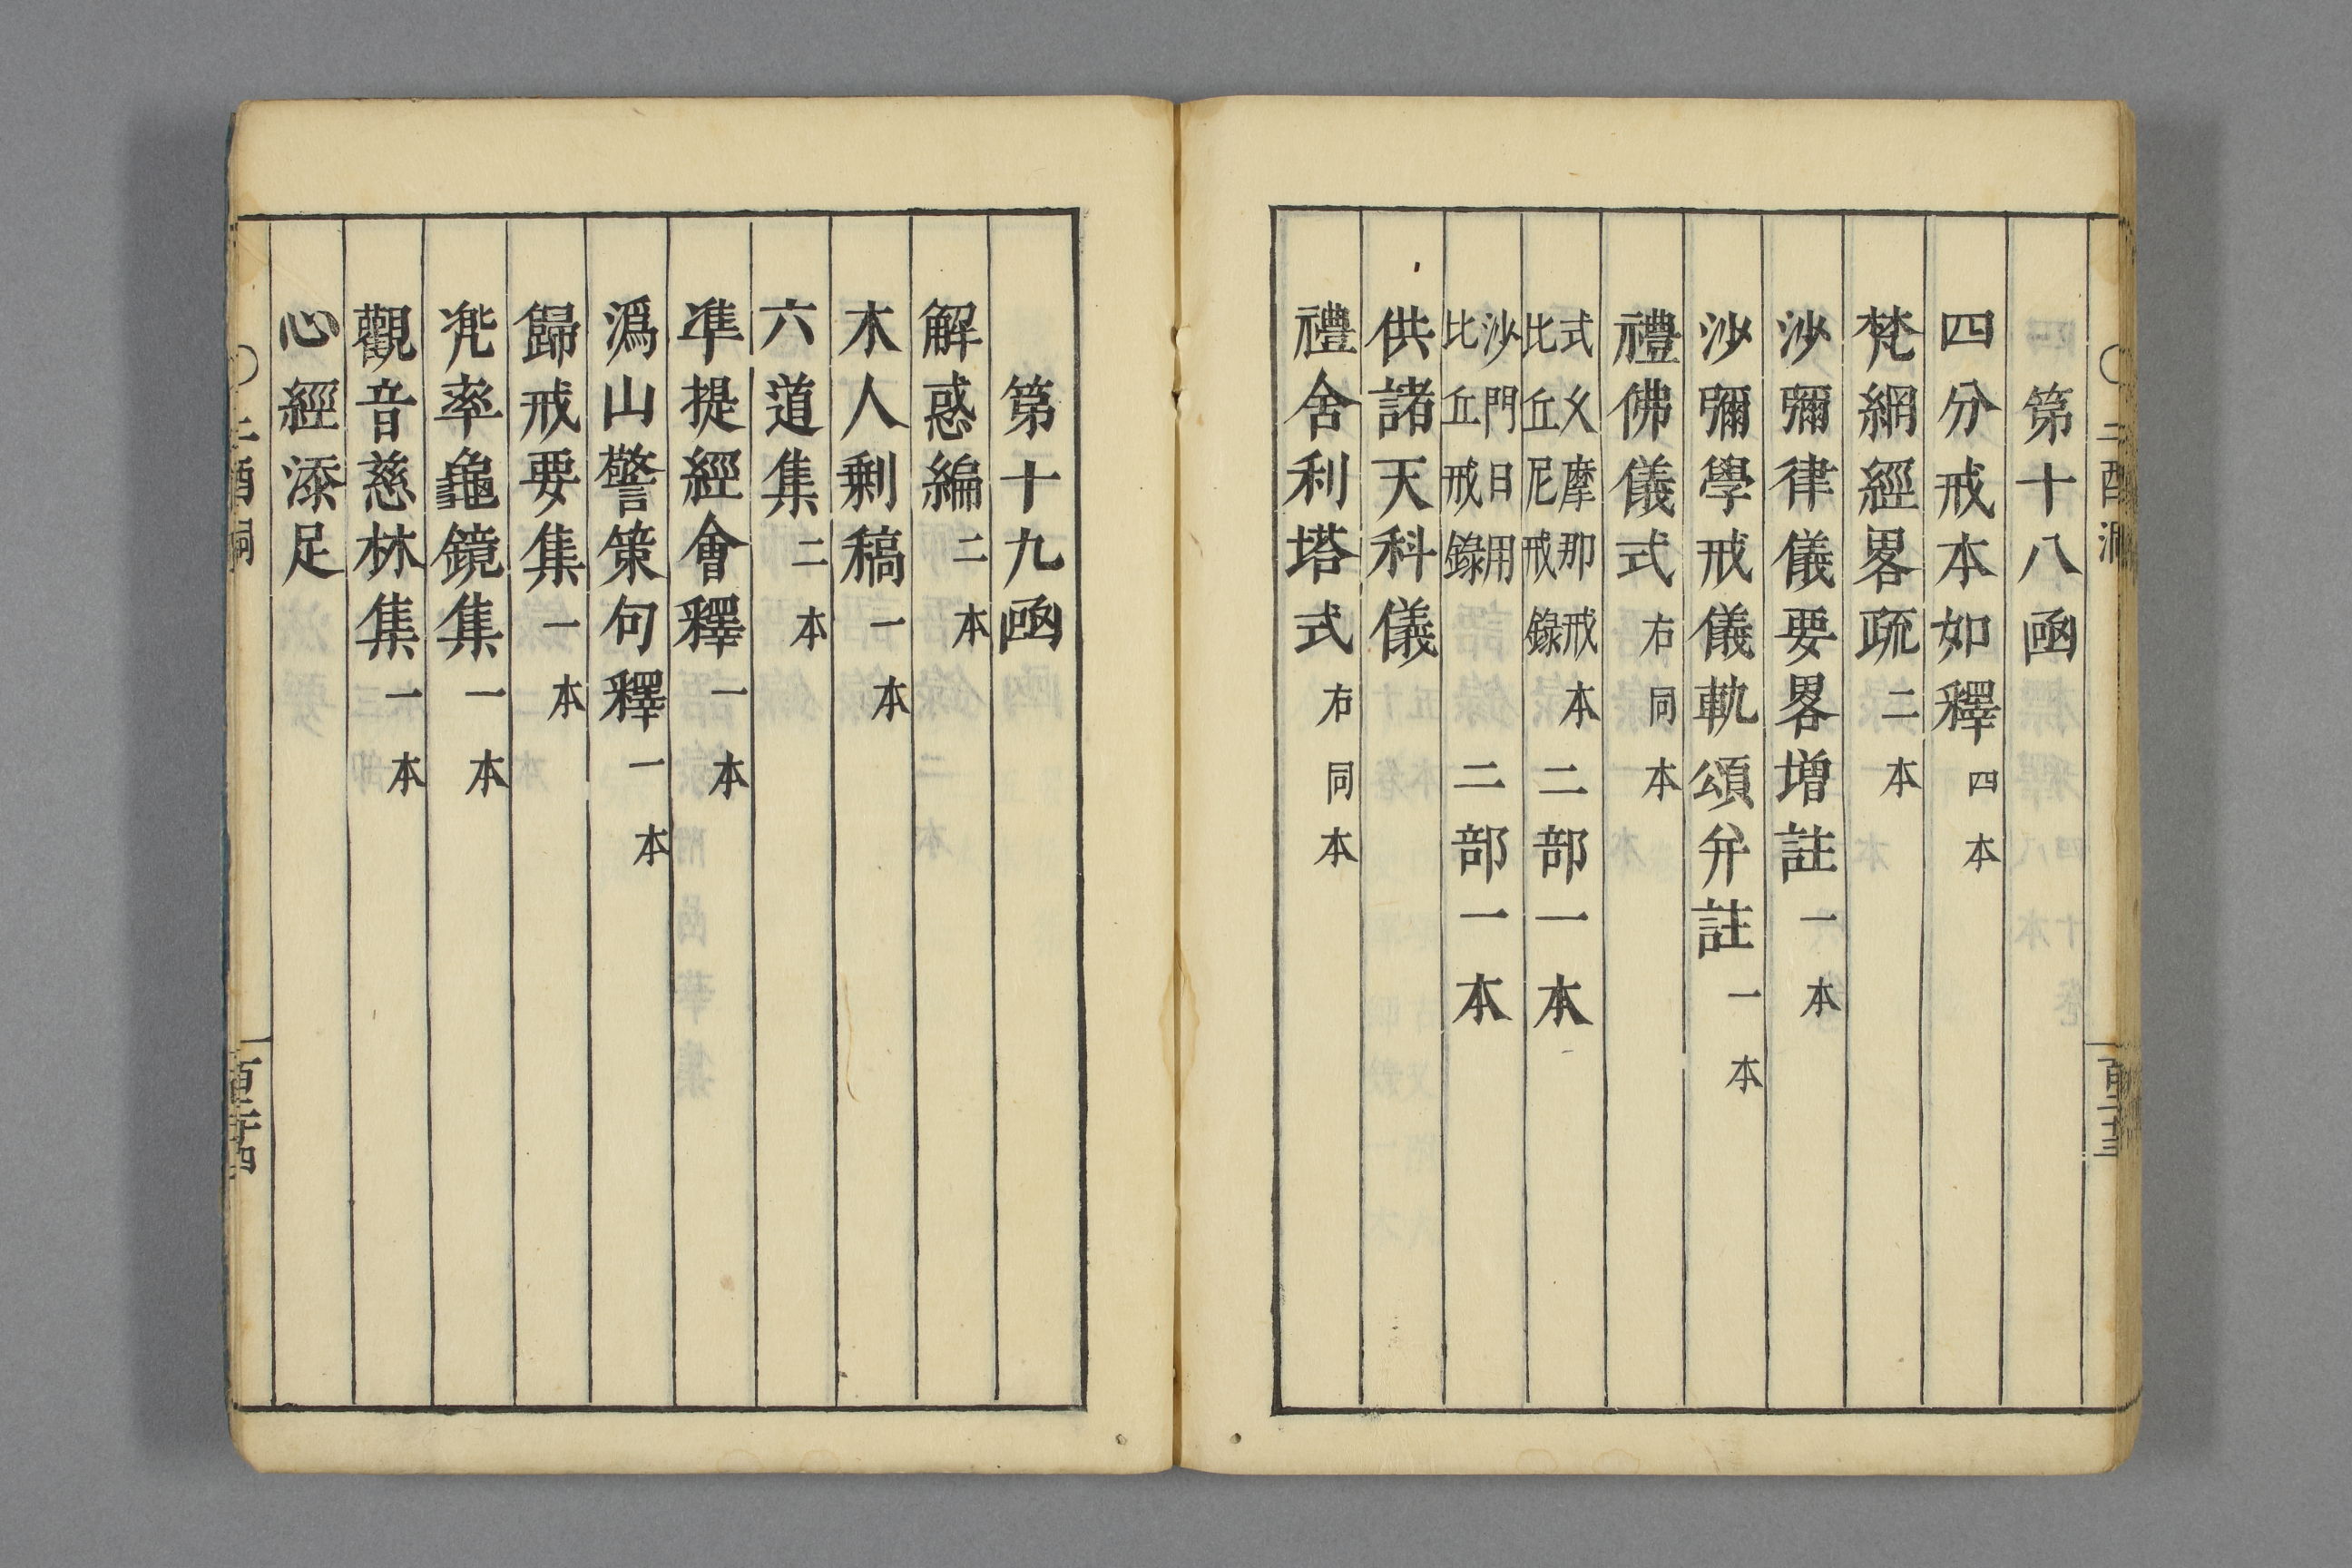 第十八凾
四分戒本如釋四本
梵網經畧疏二本
沙彌律儀要畧増註一本
沙彌學戒儀軌頌弁註一本
禮佛儀式右同本
式叉摩那戒本
比丘尼戒錄
二部一本
沙門日用
比丘戒錄
二部一本
供諸天科儀
禮舍利塔式右同本
第十九凾
解惑編二本
木人剩稿一本
六道集二本
準提經會釋一本
溈山警策句釋一本
歸戒要集一本
兠率龜鏡集一本
觀音慈林集一本
心經添足